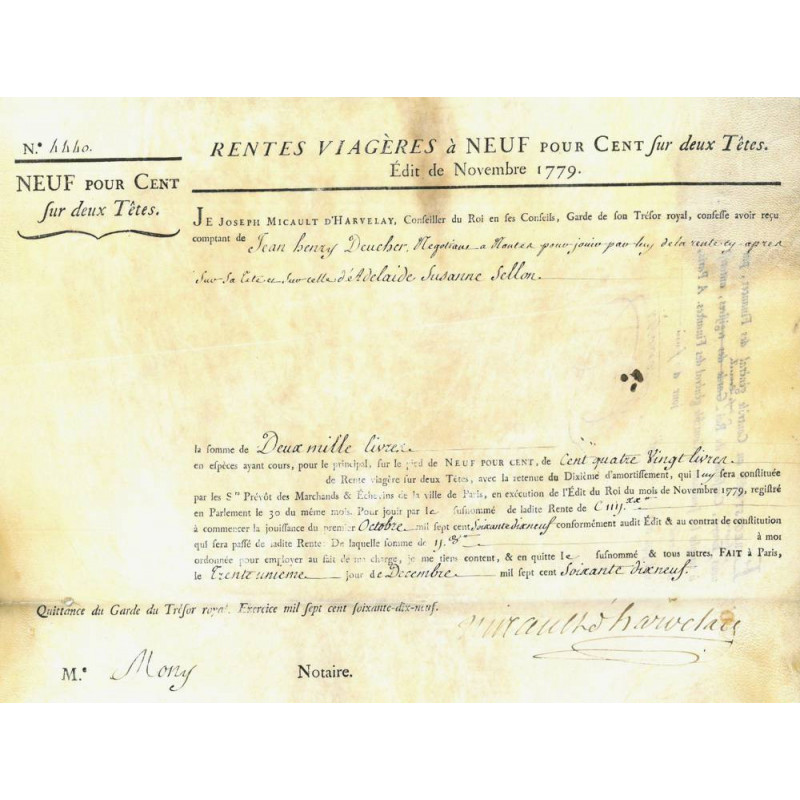 N.° 4440.
NEUF POUR CENT
ſur deux Têtes.
RENTES VIAGÈRES à NEUF POUR CENT ſur deux Têtes.
Édit de Novembre 1779.
JE JOSEPH MICAULT D'HARVELAY, Conseiller du Roi en ses Conseils, Garde de son Trésor royal, confesse avoir reçu
comptant de Jean henry Deucher, Negotiant a Nantes pour jouir par luy de la rente cy apres
Sur Sa tete et Sur celle d'Adelaide Susanne Sellon.
la somme de Deux mille livres
en espèces ayant cours, pour le principal, sur le pied de NEUF POUR CENT, de Cent quatre Vingt livres
de Rente viagère sur deux Têtes, avec la retenue du Dixième d'amortissement, qui luy sera constituée
par les S.rs Prévôt des Marchands & Échevins de la ville de Paris, en exécution de l'Édit du Roi du mois de Novembre 1779, registré
en Parlement le 30 du même mois. Pour jouir par le susnommé de ladite Rente de C iiij.xx
à commencer la jouissance du premier Octobre mil sept cent Soixante dix neuf conformément audit Édit & au contrat de constitution
qui sera passé de ladite Rente: De laquelle somme de ij. à moi
ordonnée pour employer au fait de ma charge, je me tiens content, & en quitte le susnommé & tous autres. FAIT à Paris,
le Trente unieme jour de Decembre mil sept cent Soixante dix neuf.
Quittance du Garde du Trésor royal. Exercice mil ſept cent ſoixante-dix-neuf.
Micault d'harvelay
M.e Mony Notaire.